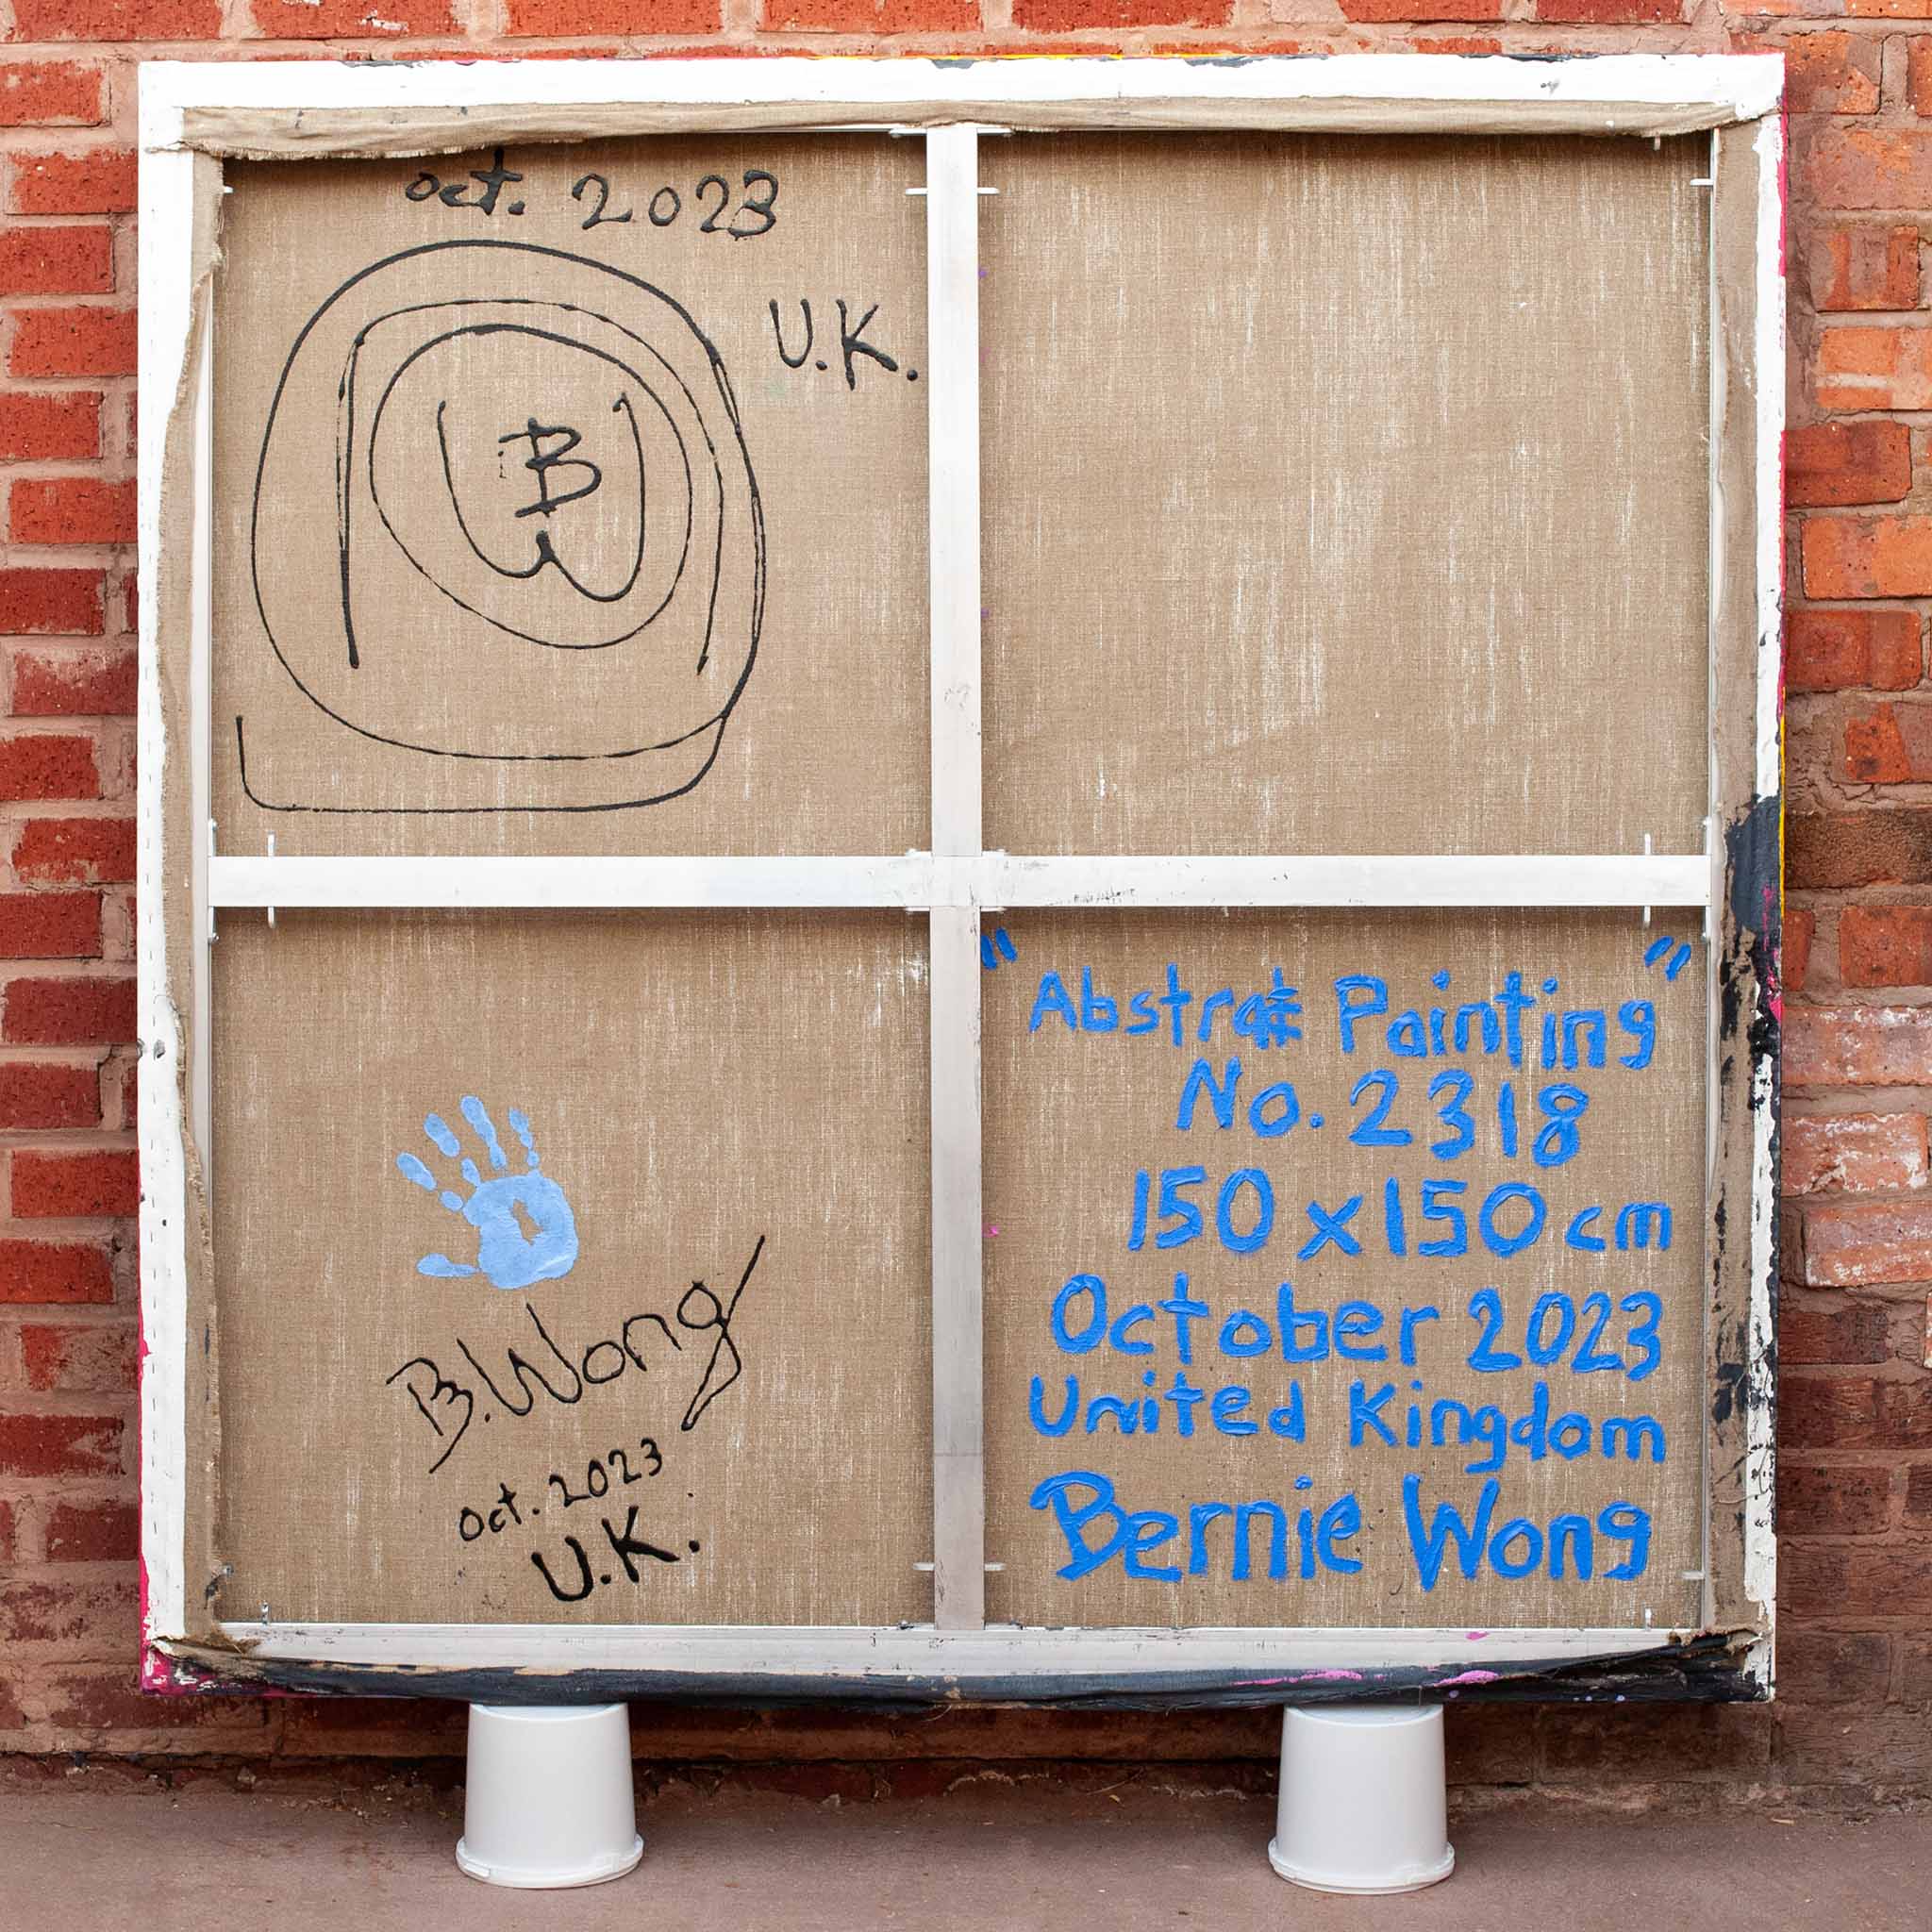 oct. 2023
U.K.
B
W
B. Wong
Oct. 2023
U.K.
"Abstract Painting"
No. 2318
150 x 150 cm
October 2023
United Kingdom
Bernie Wong